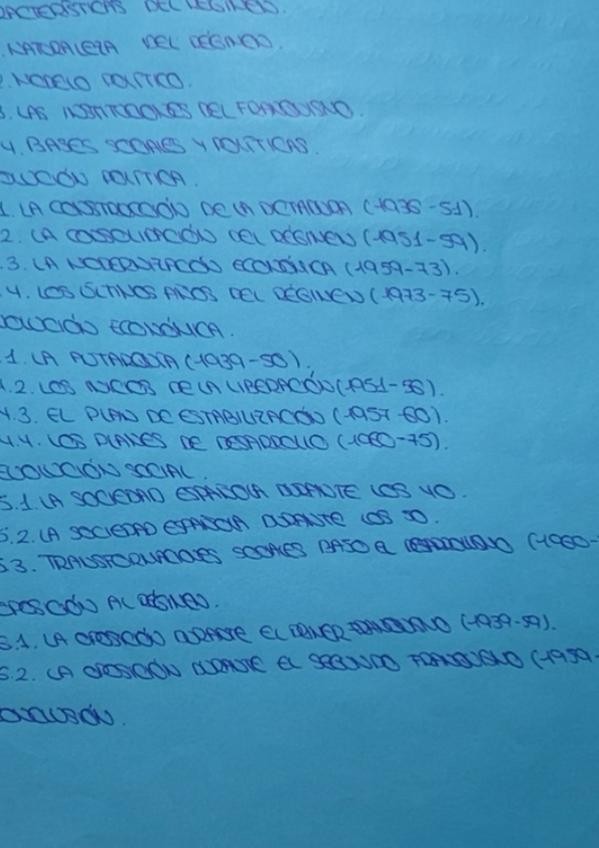 RACTERÍSTICAS DEL RÉGIMEN.
. NATURALEZA DEL RÉGIMEN.
2. MODELO POLÍTICO.
3. LAS INSTITUCIONES DEL FRANQUISMO.
4. BASES SOCIALES Y POLÍTICAS.
OLUCIÓN POLÍTICA.
1. LA CONSTRUCCIÓN DE LA DICTADURA (1936-51).
2. LA CONSOLIDACIÓN DEL RÉGIMEN (1951-59).
.3. LA MODERNIZACIÓN ECONÓMICA (1959-73).
.4. LOS ÚLTIMOS AÑOS DEL RÉGIMEN (1973-75).
VOLUCIÓN ECONÓMICA.
.1. LA AUTARQUÍA (1939-50).
4.2. LOS INICIOS DE LA LIBERACIÓN (1951-56).
4.3. EL PLAN DE ESTABILIZACIÓN (1957-60).
4.4. LOS PLANES DE DESARROLLO (1960-75).
EVOLUCIÓN SOCIAL.
5.1. LA SOCIEDAD ESPAÑOLA DURANTE LOS 40.
5.2. LA SOCIEDAD ESPAÑOLA DURANTE LOS 50.
5.3. TRANSFORMACIONES SOCIALES BAJO EL DESARROLLISMO (1960-
OPOSICIÓN AL RÉGIMEN.
6.1. LA OPOSICIÓN DURANTE EL PRIMER FRANQUISMO (1939-59).
6.2. LA OPOSICIÓN DURANTE EL SEGUNDO FRANQUISMO (1959-
ONCLUSIÓN.